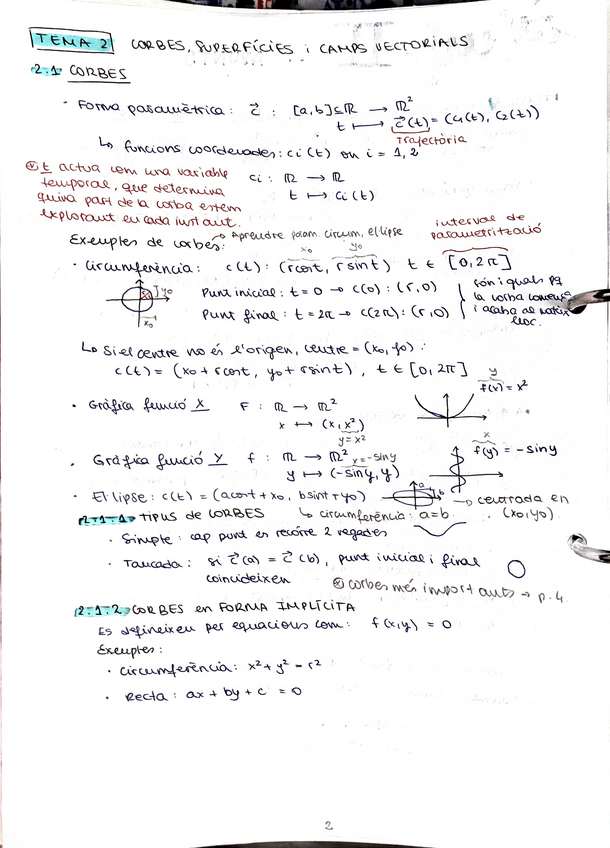 TEMA 2 CORBES, SUPERFÍCIES i CAMPS VECTORIALS
2.1 CORBES
· Forma paramètrica: c⃗ : [a,b]⊆ℝ → ℝ²
t ↦ c⃗(t) = (c₁(t), c₂(t))
Trajectòria
↳ funcions coordenades: ci(t) on i = 1,2
* t actua com una variable
temporal, que determina
quina part de la corba estem
explorant en cada instant.
ci : ℝ → ℝ
t ↦ ci(t)
Exemples de corbes:
→ Aprendre param. circum, el·lipse
interval de
parametrització
x₀ y₀
· Circumferència: c(t): (rcost, rsint) t ∈ [0,2π]
y₀
x₀
Punt inicial: t = 0 → c(0): (r,0)
Punt final: t = 2π → c(2π): (r,0)
són iguals pq
la corba comença
i acaba al mateix
lloc.
↳ Si el centre no és l'origen, centre = (x₀, y₀):
c(t) = (x₀ + rcost, y₀ + rsint), t ∈ [0,2π]
· Gràfica funció x F : ℝ → ℝ²
x ↦ (x, x²)
y = x²
y
f(x) = x²
· Gràfica funció y f : ℝ → ℝ²
x = -siny
y ↦ (-siny, y)
x
f(y) = -siny
· El·lipse: c(t) = (acost + x₀, bsint + y₀)
a
b
→ centrada en
(x₀,y₀)
↳ circumferència: a=b
2.1.1 TIPUS de CORBES
· Simple: cap punt es recorre 2 vegades
· Tancada: si c⃗(a) = c⃗(b), punt inicial i final
coincideixen
* corbes més importants → p.4
2.1.2 CORBES en FORMA IMPLÍCITA
Es defineixen per equacions com: f(x,y) = 0
Exemples:
· Circumferència: x² + y² = r²
· Recta: ax + by + c = 0
2